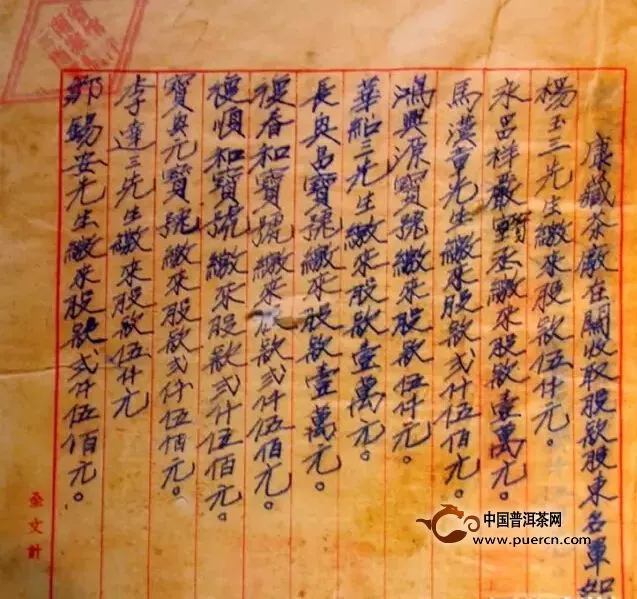 康藏茶廠在關收取股款股東名單如
楊玉三先生繳來股款伍仟元。
永昌祥嚴繳來股款壹萬元。
馬漢章先生繳來股款弍仟伍佰元。
鴻興源寶號繳來股款伍仟元。
華紹三先生繳來股款壹萬元。
長興昌寶號繳來股款壹萬元。
復春和寶號繳來股款弍仟伍佰元。
復順和寶號繳來股款弍仟伍佰元。
寶興元寶號繳來股款弍仟伍佰元。
李達三先生繳來股款伍仟元
鄒錫安先生繳來股款弍仟伍佰元。
中国普洱茶网
www.puercn.com